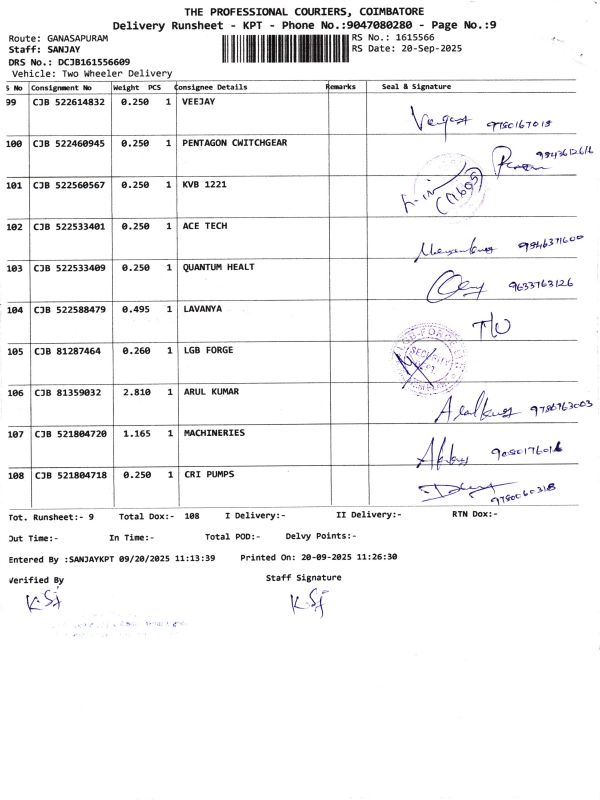 THE PROFESSIONAL COURIERS, COIMBATORE
Delivery Runsheet - KPT - Phone No.:9047080280 - Page No.:9
Route: GANASAPURAM RS No.: 1615566
Staff: SANJAY RS Date: 20-Sep-2025
DRS No.: DCJB161556609
Vehicle: Two Wheeler Delivery
S No Consignment No Weight PCS Consignee Details Remarks Seal & Signature
99 CJB 522614832 0.250 1 VEEJAY
100 CJB 522460945 0.250 1 PENTAGON CWITCHGEAR
101 CJB 522560567 0.250 1 KVB 1221
102 CJB 522533401 0.250 1 ACE TECH 9846371600
103 CJB 522533409 0.250 1 QUANTUM HEALT 9633763126
104 CJB 522588479 0.495 1 LAVANYA T/O
105 CJB 81287464 0.260 1 LGB FORGE SECURITY
106 CJB 81359032 2.810 1 ARUL KUMAR
107 CJB 521804720 1.165 1 MACHINERIES
108 CJB 521804718 0.250 1 CRI PUMPS
Tot. Runsheet:- 9 Total Dox:- 108 I Delivery:- II Delivery:- RTN Dox:-
Out Time:- In Time:- Total POD:- Delvy Points:-
Entered By :SANJAYKPT 09/20/2025 11:13:39 Printed On: 20-09-2025 11:26:30
Verified By Staff Signature